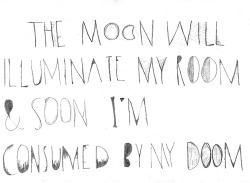 THE MOON WILL
ILLUMINATE MY ROOM
& SOON I'M
CONSUMED BY MY DOOM